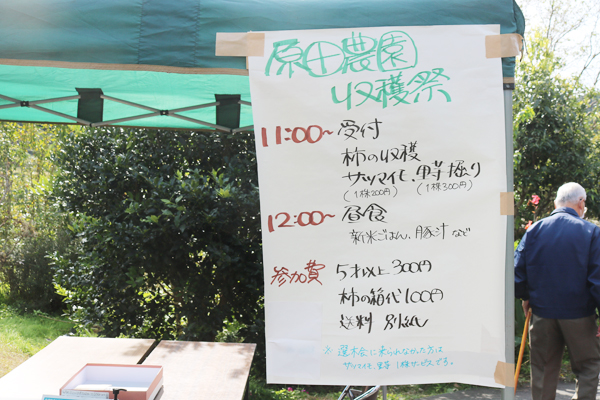 原田農園
収穫祭
11:00~ 受付
柿の収穫
サツマイモ、里芋掘り
(1株200円) (1株300円)
12:00~ 昼食
新米ごはん、豚汁 など
参加費 5才以上 300円
柿の箱代100円
送料 別紙
※ 選木会に来られなかった方は
サツマイモ、里芋 1株サービスです。